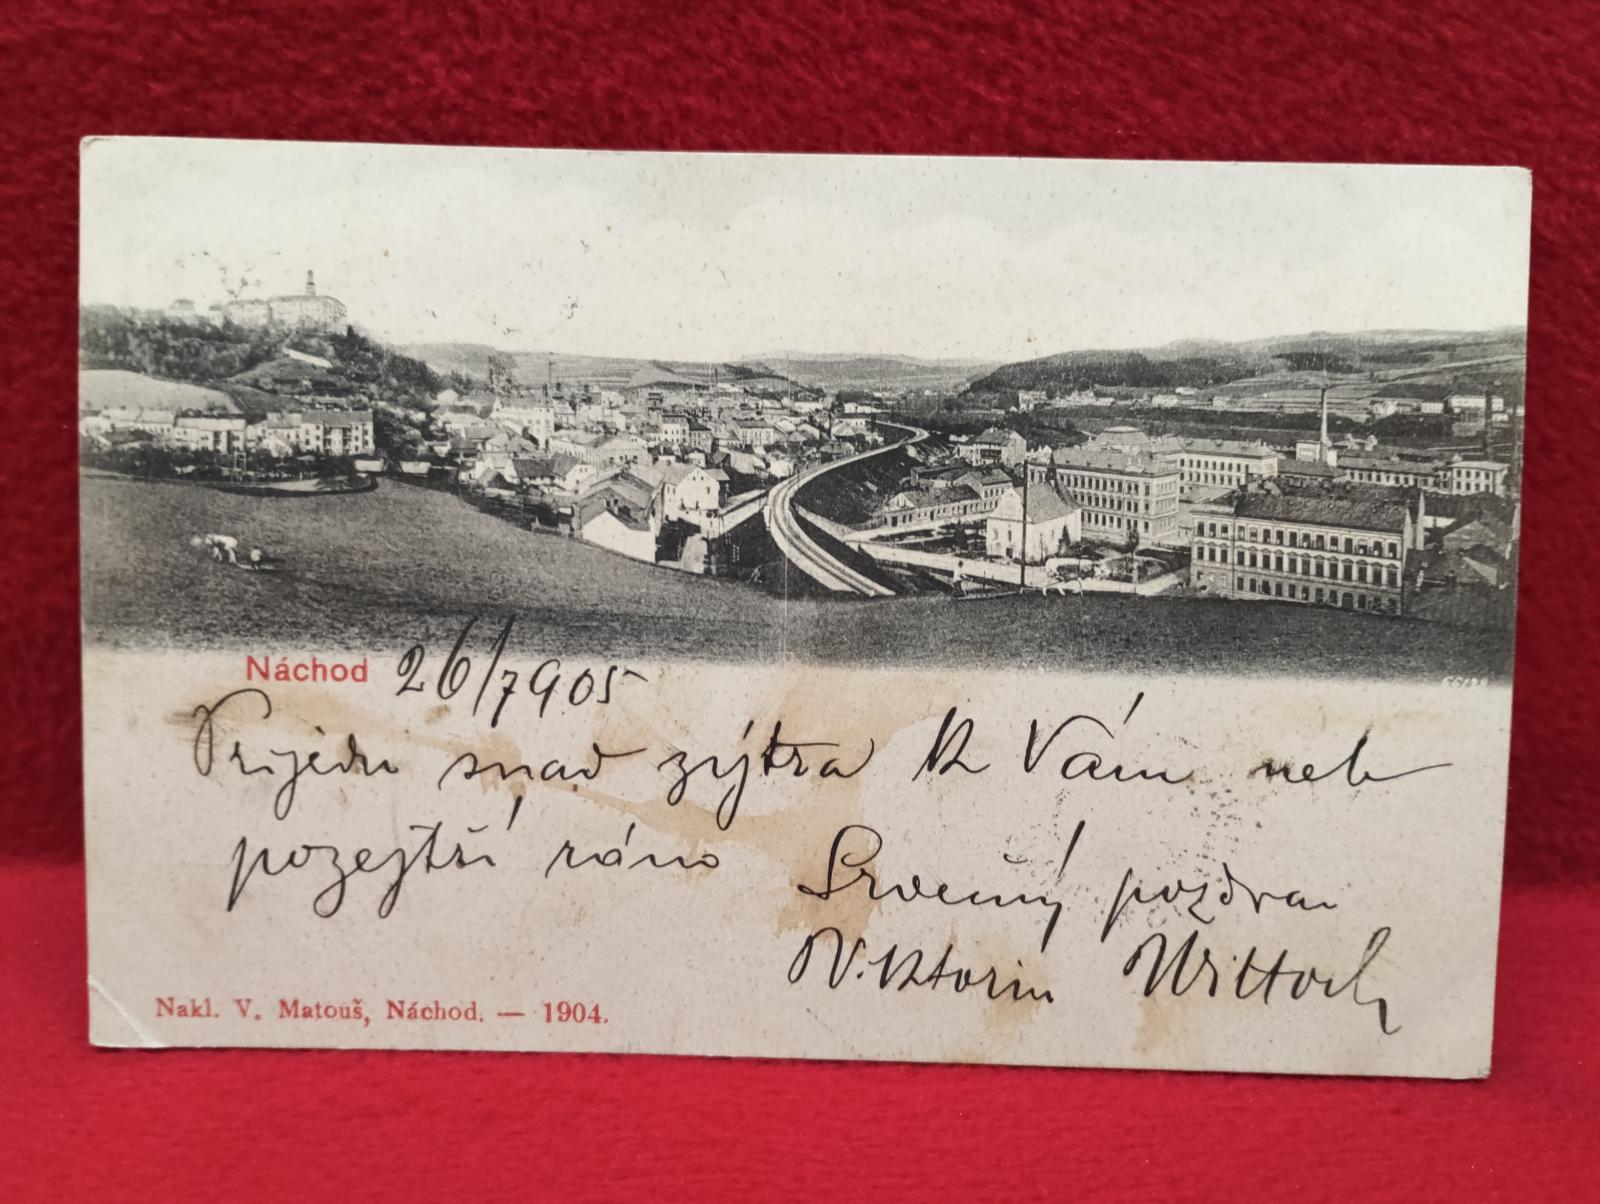 Náchod 26/7 905
Přijedu snad zýtra k Vám neb
pozejtří ráno
Srdečný pozdrav
Viktorin Wittoch
Nakl. V. Matouš, Náchod. — 1904.